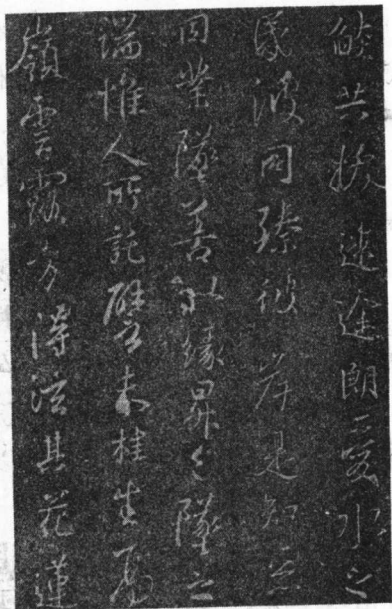 燄共拔迷途朗愛水之
昏波同臻彼岸是知惡
因業墜善以緣昇々墜之
端惟人所託譬夫桂生高
嶺雲露方得泫其花蓮